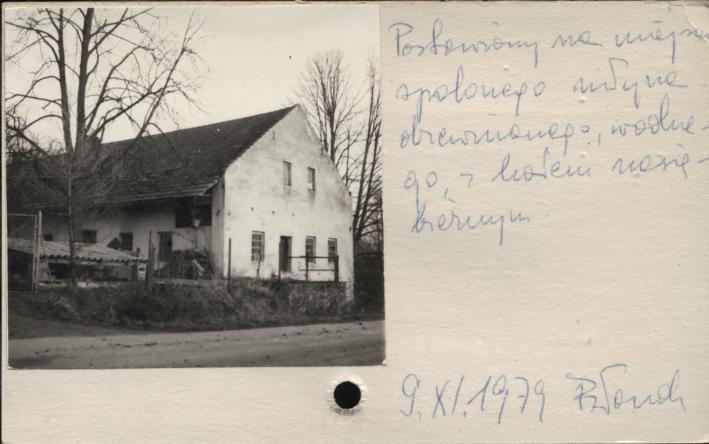 Postawiony na miejscu
spalonego młyna
drewnianego, wodne-
go, z kołem nasię-
biernym.
9.XI.1979